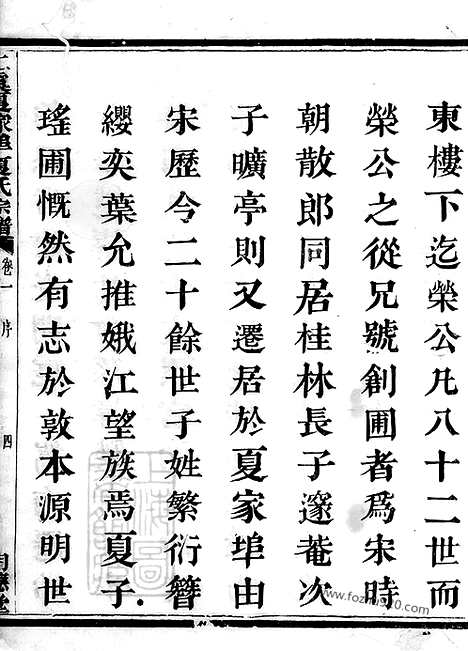 東樓下迄榮公凡八十二世而
榮公之從兄號創圃者爲宋時
朝散郎同居桂林長子邃菴次
子曠亭則又遷居於夏家埠由
宋歷今二十餘世子姓繁衍簪
纓奕葉允推娥江望族焉夏子
瑤圃慨然有志於敦本源明世
夏氏宗譜 卷一 序 四
www.fozhu920.com